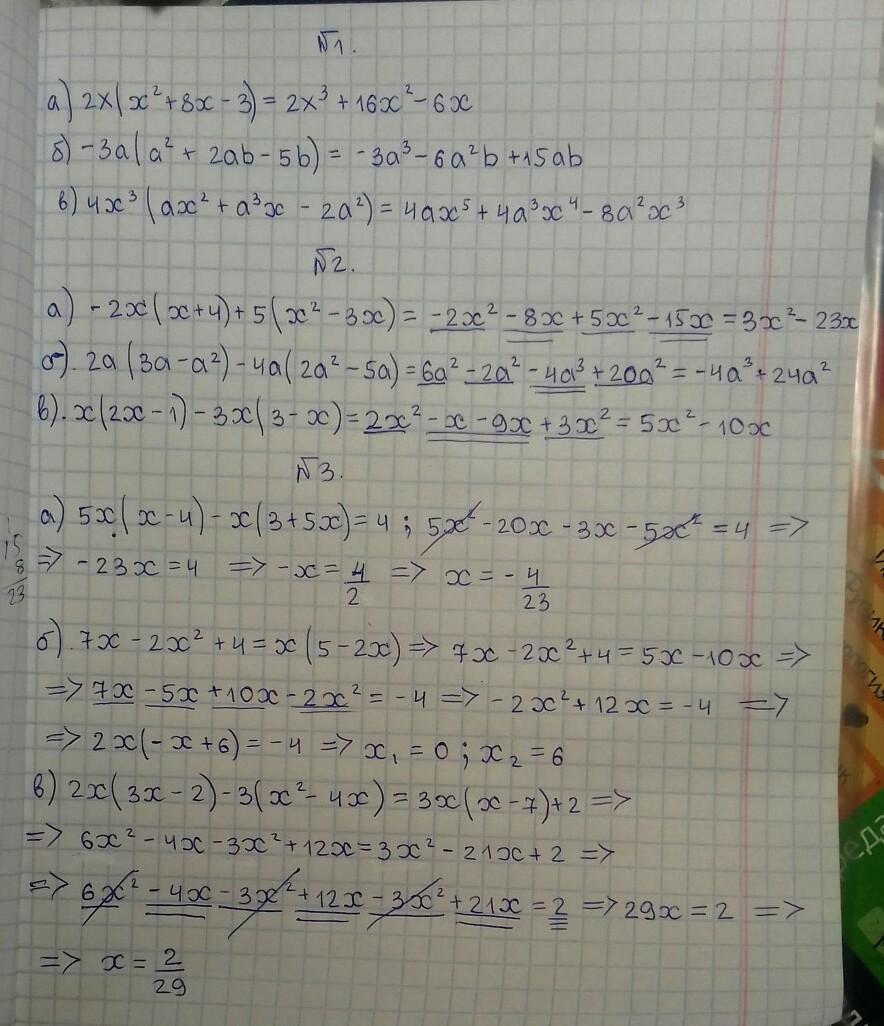 №1.
а) 2x(x²+8x-3)=2x³+16x²-6x
б) -3a(a²+2ab-5b)= -3a³-6a²b+15ab
в) 4x³(ax²+a³x-2a²)=4ax⁵+4a³x⁴-8a²x³
№2.
а) -2x(x+4)+5(x²-3x)= -2x²-8x+5x²-15x=3x²-23x
б). 2a(3a-a²)-4a(2a²-5a)=6a²-2a²-4a³+20a²= -4a³+24a²
в). x(2x-1)-3x(3-x)=2x²-x-9x+3x²=5x²-10x
№3.
а) 5x(x-4)-x(3+5x)=4; 5x²-20x-3x-5x²=4 =>
=> -23x=4 => -x=4/2 => x=-4/23
15
8
23
б). 7x-2x²+4=x(5-2x)=> 7x-2x²+4=5x-10x =>
=> 7x-5x+10x-2x²= -4 => -2x²+12x= -4 =>
=> 2x(-x+6)= -4 => x₁=0; x₂=6
в) 2x(3x-2)-3(x²-4x)=3x(x-7)+2 =>
=> 6x²-4x-3x²+12x=3x²-21x+2 =>
=> 6x²-4x-3x²+12x-3x²+21x=2 => 29x=2 =>
=> x=2/29